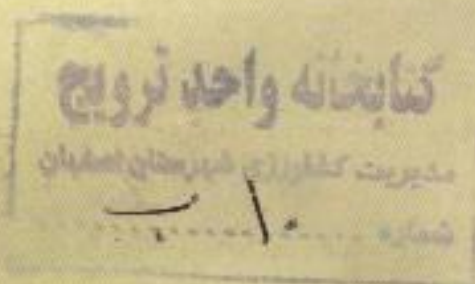 کتابخانه واحد ترویج
مدیریت کشاورزی شهرستان اصفهان
شماره